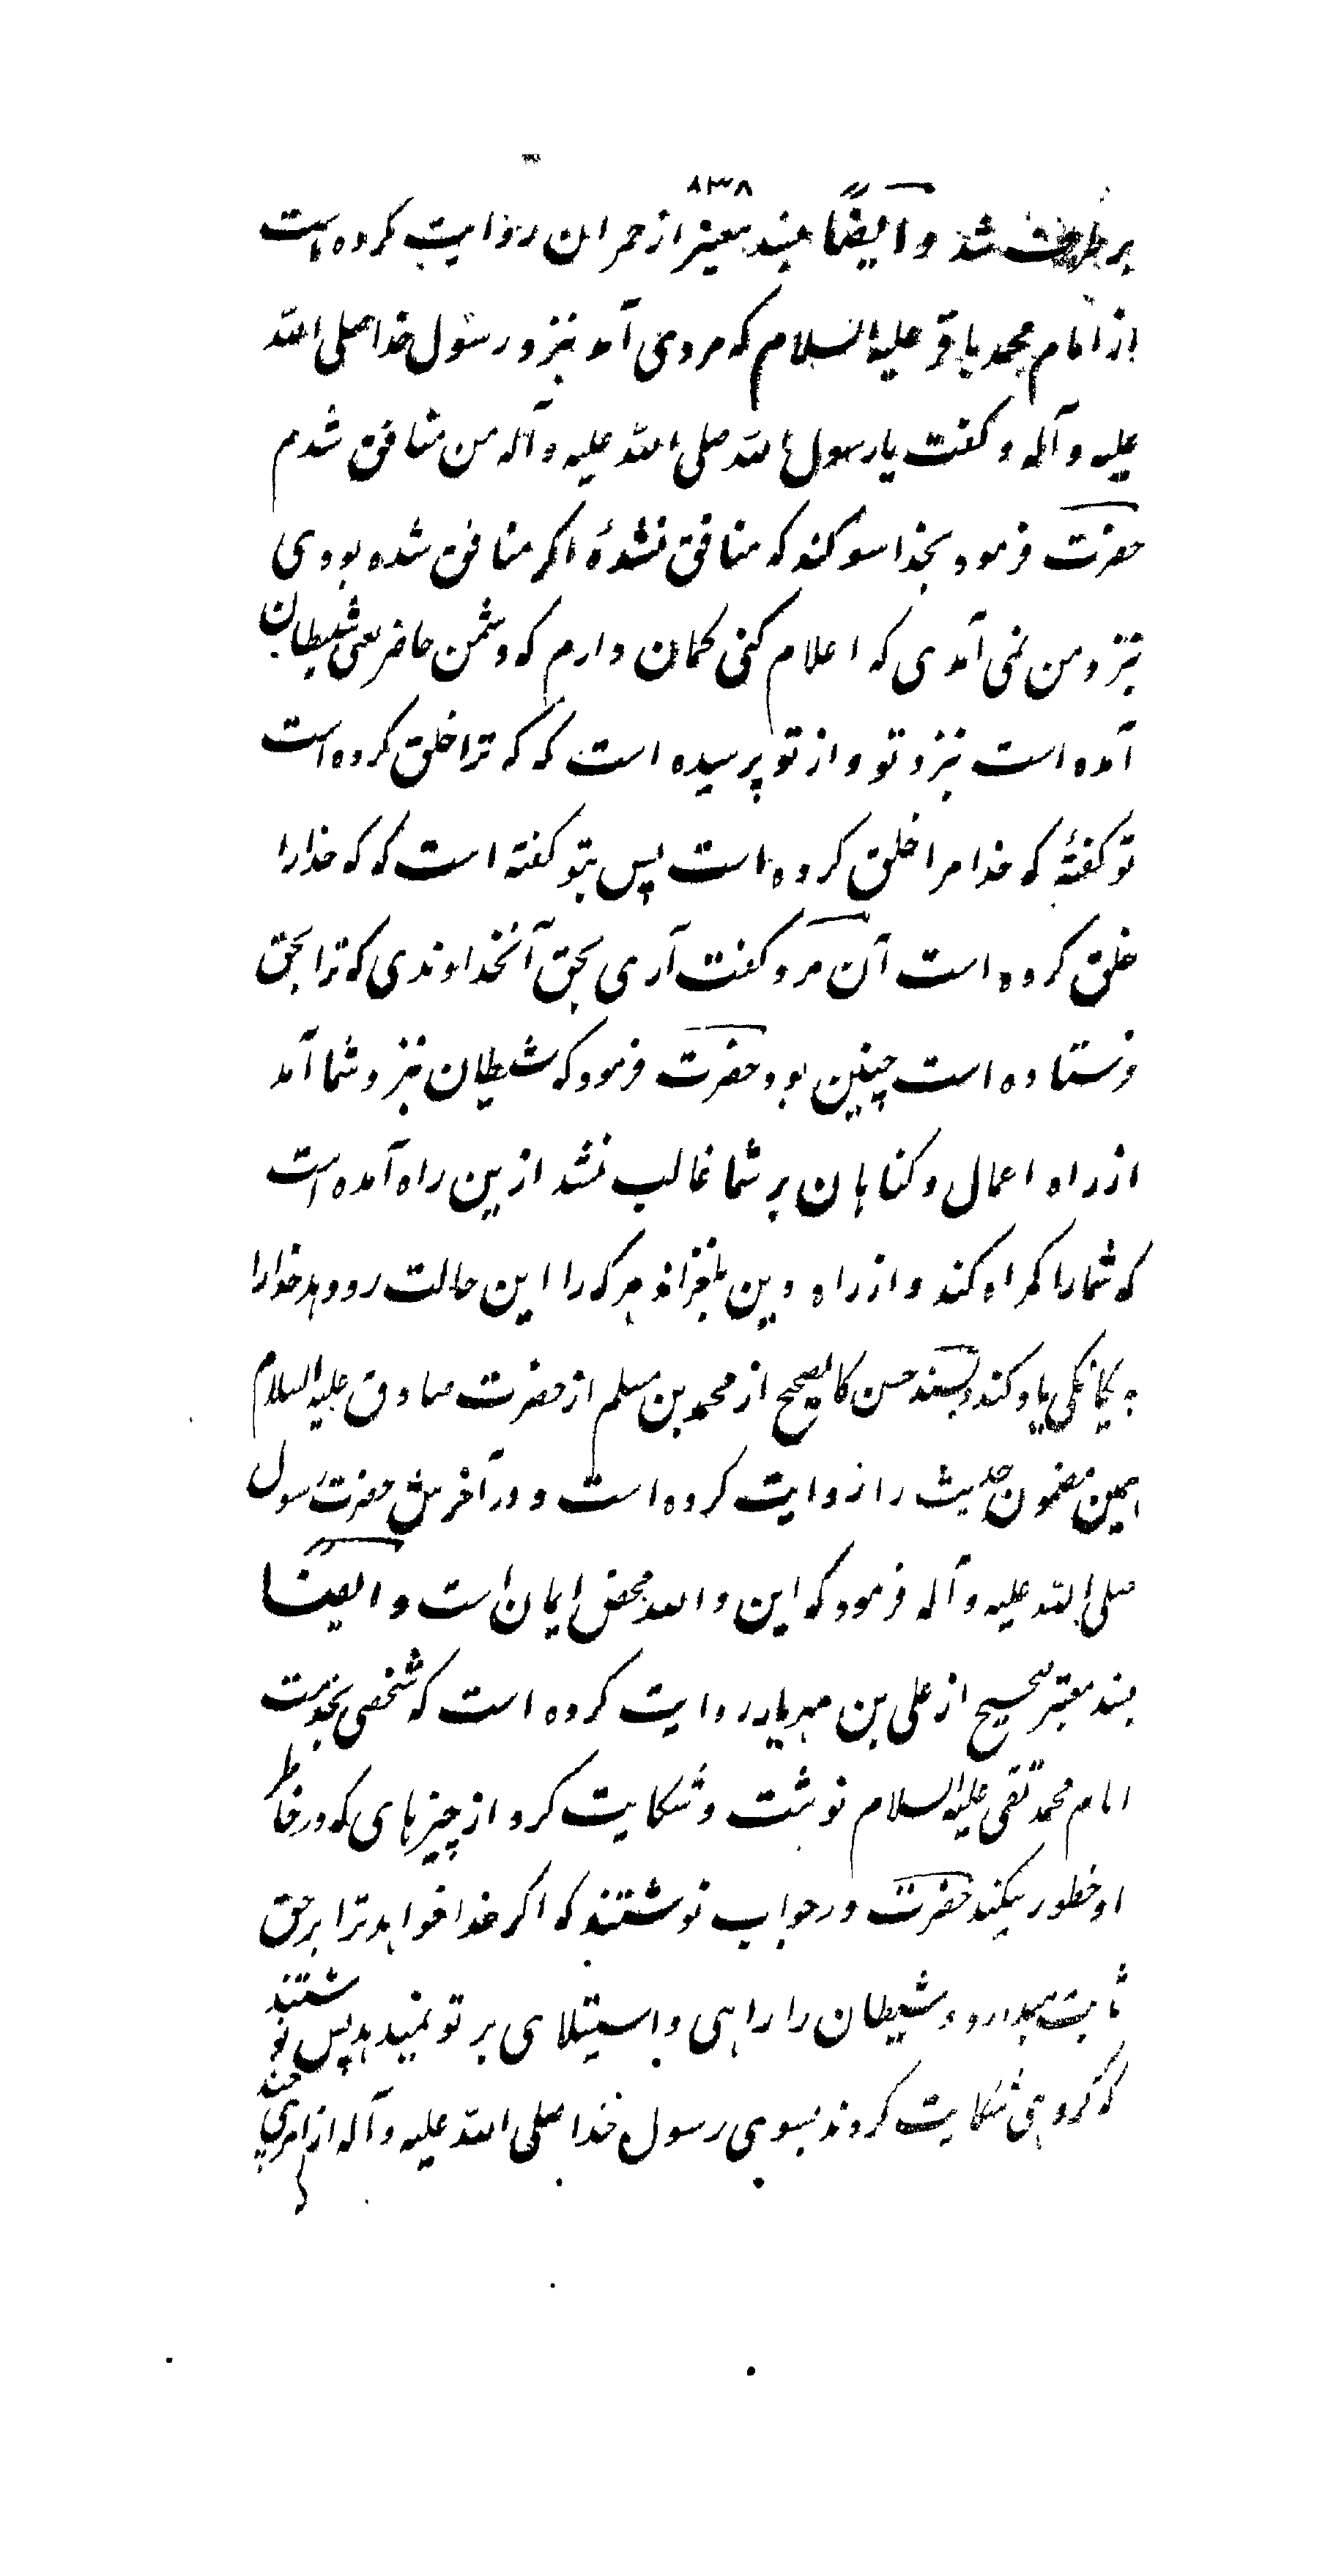 ۸۳۸
بر طرف شد و ایضًا بسند معتبر از حمران روایت کرده است
از امام محمد باقر علیه السلام که مردی آمد بنزد رسول خدا صلی الله
علیه و آله و کفت یا رسول الله صلی الله علیه و آله من منافق شدم
حضرت فرمود بخدا سوکند که منافق نشدهٔ اکر منافق شده بودی
بنزد من نمی آمدی که اعلام کنی کمان دارم که دشمن حاضر یعنی شیطان
آمده است بنزد تو و از تو پرسیده است که که ترا خلق کرده است
تو کفتهٔ که خدا مرا خلق کرده است پس بتو کفته است که که خدا را
خلق کرده است آن مرد کفت آری بحق آنخداوندی که ترا بحق
فرستاده است چنین بود حضرت فرمود که شیطان بنزد شما آمد
از راه اعمال و کناهان بر شما غالب نشد ازین راه آمده است
که شما را کمراه کند و از راه دین بلغزاند هر که را این حالت رو دهد خدا را
به یکانکی یاد کند و بسند حسن کالصحیح از محمد بن مسلم از حضرت صادق علیه السلام
همین مضمون حدیث را روایت کرده است و در آخرش حضرت رسول
صلی الله علیه و آله فرمود که این والله محض ایمان است و ایضًا
بسند معتبر صحیح از علی بن مهریار روایت کرده است که شخصی بخدمت
امام محمد تقی علیه السلام نوشت و شکایت کرد از چیزهای که در خاطر
او خطور میکند حضرت در جواب نوشتند که اکر خدا خواهد ترا بر حق
ثابت میدارد و شیطان را راهی و استیلای بر تو نمیدهد پس نوشتند
که کروهی شکایت کردند بسوی رسول خدا صلی الله علیه و آله از امری چند